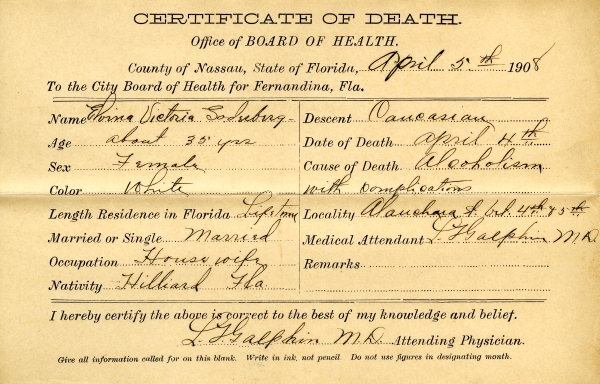 CERTIFICATE OF DEATH.
Office of BOARD OF HEALTH.
County of Nassau, State of Florida, April 5th 1908
To the City Board of Health for Fernandina, Fla.
Name Elvina Victoria
Age about 35 yrs
Sex Female
Color White
Length Residence in Florida Lifetime
Married or Single Married
Occupation House wife
Nativity Hilliard Fla
Descent Caucasian
Date of Death April 4th
Cause of Death Alcoholism
with complications
Locality Alachua St. bet. 4th & 5th
Medical Attendant L. F. Galphin M D.
Remarks
I hereby certify the above is correct to the best of my knowledge and belief.
L. F. Galphin M.D. Attending Physician.
Give all information called for on this blank. Write in ink, not pencil. Do not use figures in designating month.